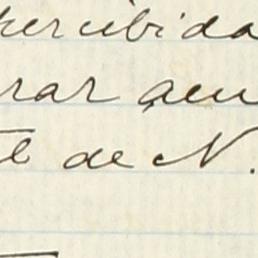 percibida
rar acu
de N.